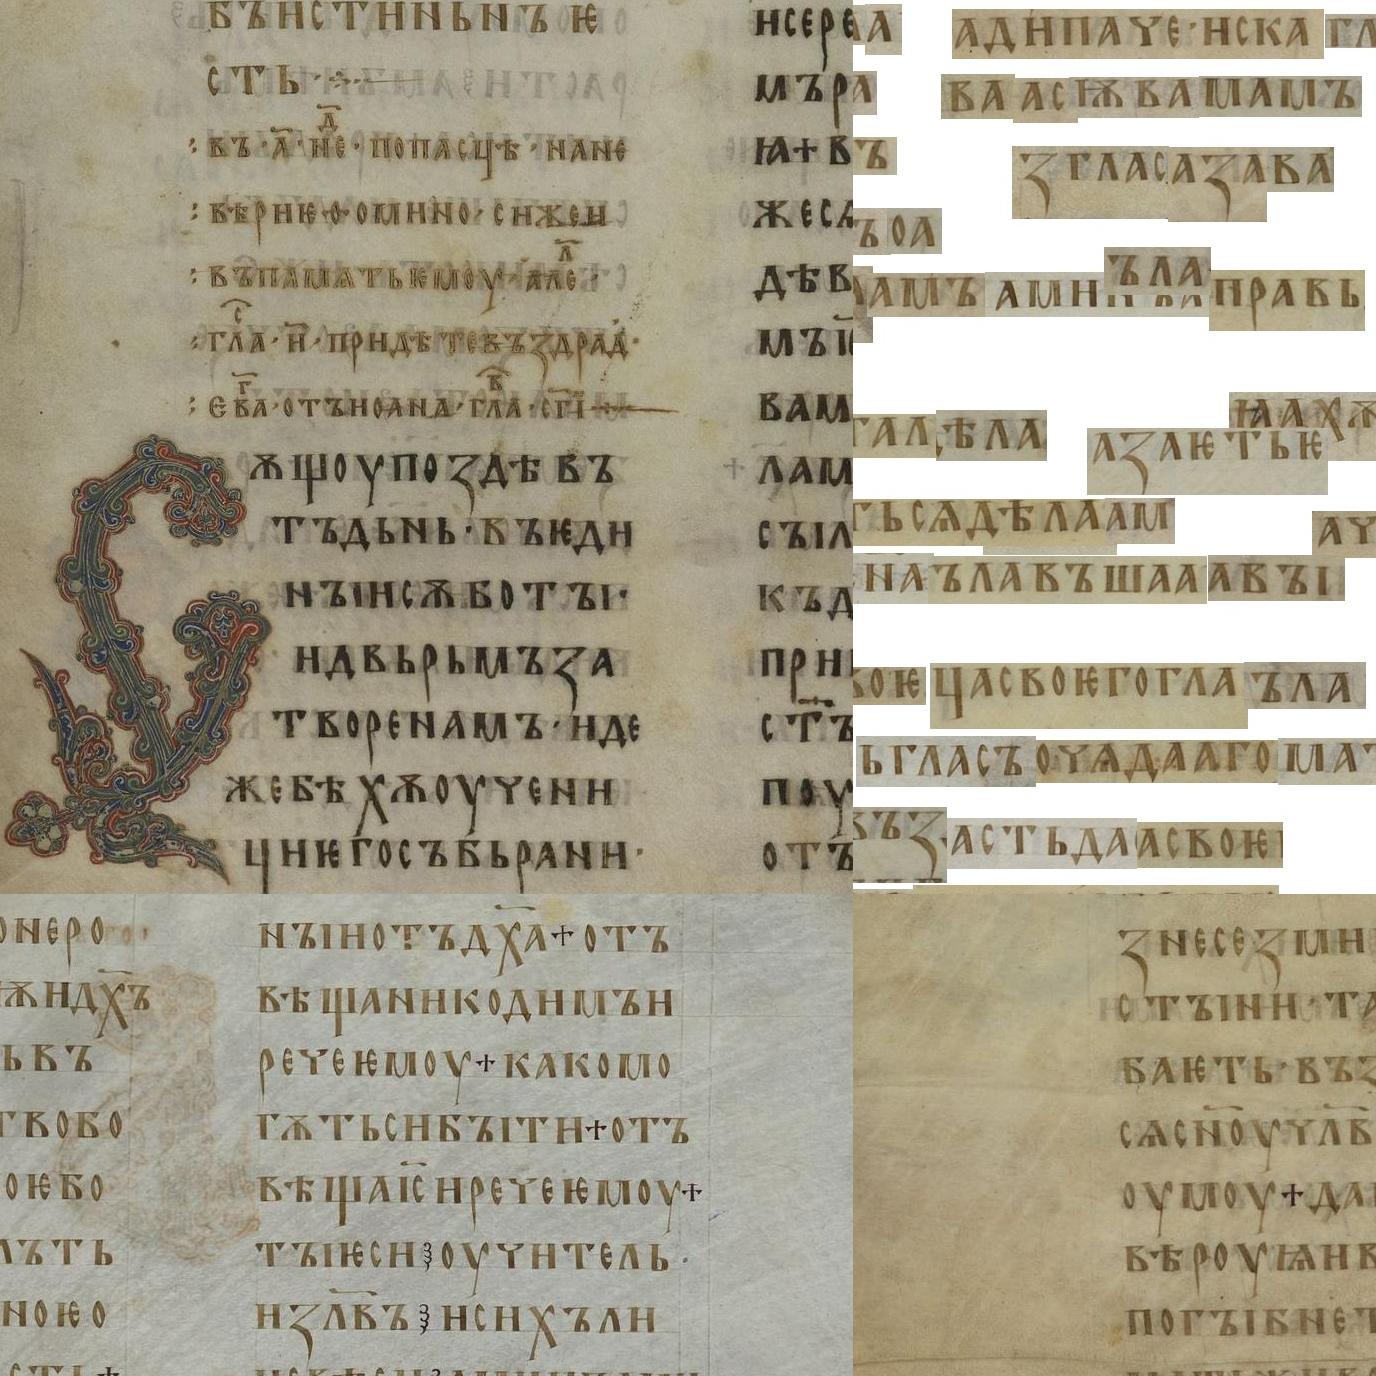 БꙐНСТННЬНЪ Ѥ
СТЬ
: ВЪ · А҃ · НЕ · ПОПАСЦѢ · НАНЕ
: ВѢРНѤ · О · ОМННО · СНЖЕН
: ВЪПАМАТЬѤМОУ · АЛЕ ·
: ГЛА · Н҃ · ПРНДѢТЕВЪЗДРАД ·
: ЕВА · ОТЪНОАНА · ГЛА · СГІ
ѪЩОУПОЗДѢВЪ
ТЪДЬНЬ · ВЪѤДН
НЪІНСѪБОТЪІ ·
НДВЬРЬМЪЗА
ТВОРЕНАМЪ · НДЕ
ЖЕБѢХѪОУЧЕНН
ЦНѤГОСЪБЬРАНН ·
НСЕРЕ
МЪР
Ꙗ+В
ЖЕС
ДѢВ
МЪІ
ВАМ
ЛАМ
СЪІЛ
КЪД
ПРН
СТЪ
ПОУ
ОТЪ
А АДНПАЧЕ · НСКА ГЛ
А ВААСѬВАМАМЪ
Ъ ЗГЛАСАЗАВА
ЪОА
АМЪ АМН ЪЛА ПРАВЬ
ГАЛ ѢЛА ꙖАХѪ
АЗАѤТЬѤ
ТЬСѦДѢЛААМ АЧ
НАЪЛАВЪШАААВЪІ
ВОѤ ЦАСВОѤГОГЛА ЪЛА
ЬГЛАСЪОУѦДААГОМАТ
ВЪЗАСТЬДААСВОѤ
ОНЕРО
ѪНДХ҃Ъ
ЬВЪ
ТВОБО
ОѤБО
ЛЪТЬ
НОѤО
СТЬ+
НЪІНОТЪДХ҃А+ОТЪ
ВѢЩАННКОДНМЪН
РЕЧЕѤМОУ+КАКОМО
ГѪТЬСНБЪІТН+ОТЪ
ВѢЩАІС҃НРЕЧЕѤМОУ+
ТЪІѤСН ОУЧНТЕЛЬ ·
НЗЛ҃ВЪ НСНХЪЛН
ЗНЕСЕЗМН
СТЪІНН · ТА
БАѤТЬ · ВЪЗ
СѦСН҃ОУЧЛ҃В
ОУМОУ+ДА
ВѢРОУѬНВ
ПОГЪІБНЕТ